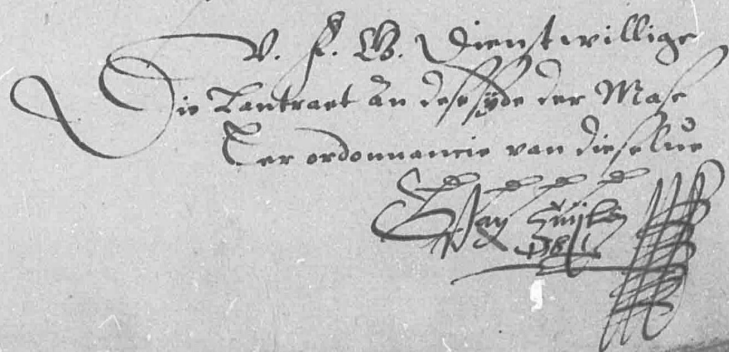 V. F. G. Dienstwillige
Die Lantraet an desse syde der Mase
Ter ordonnancie van dieselue